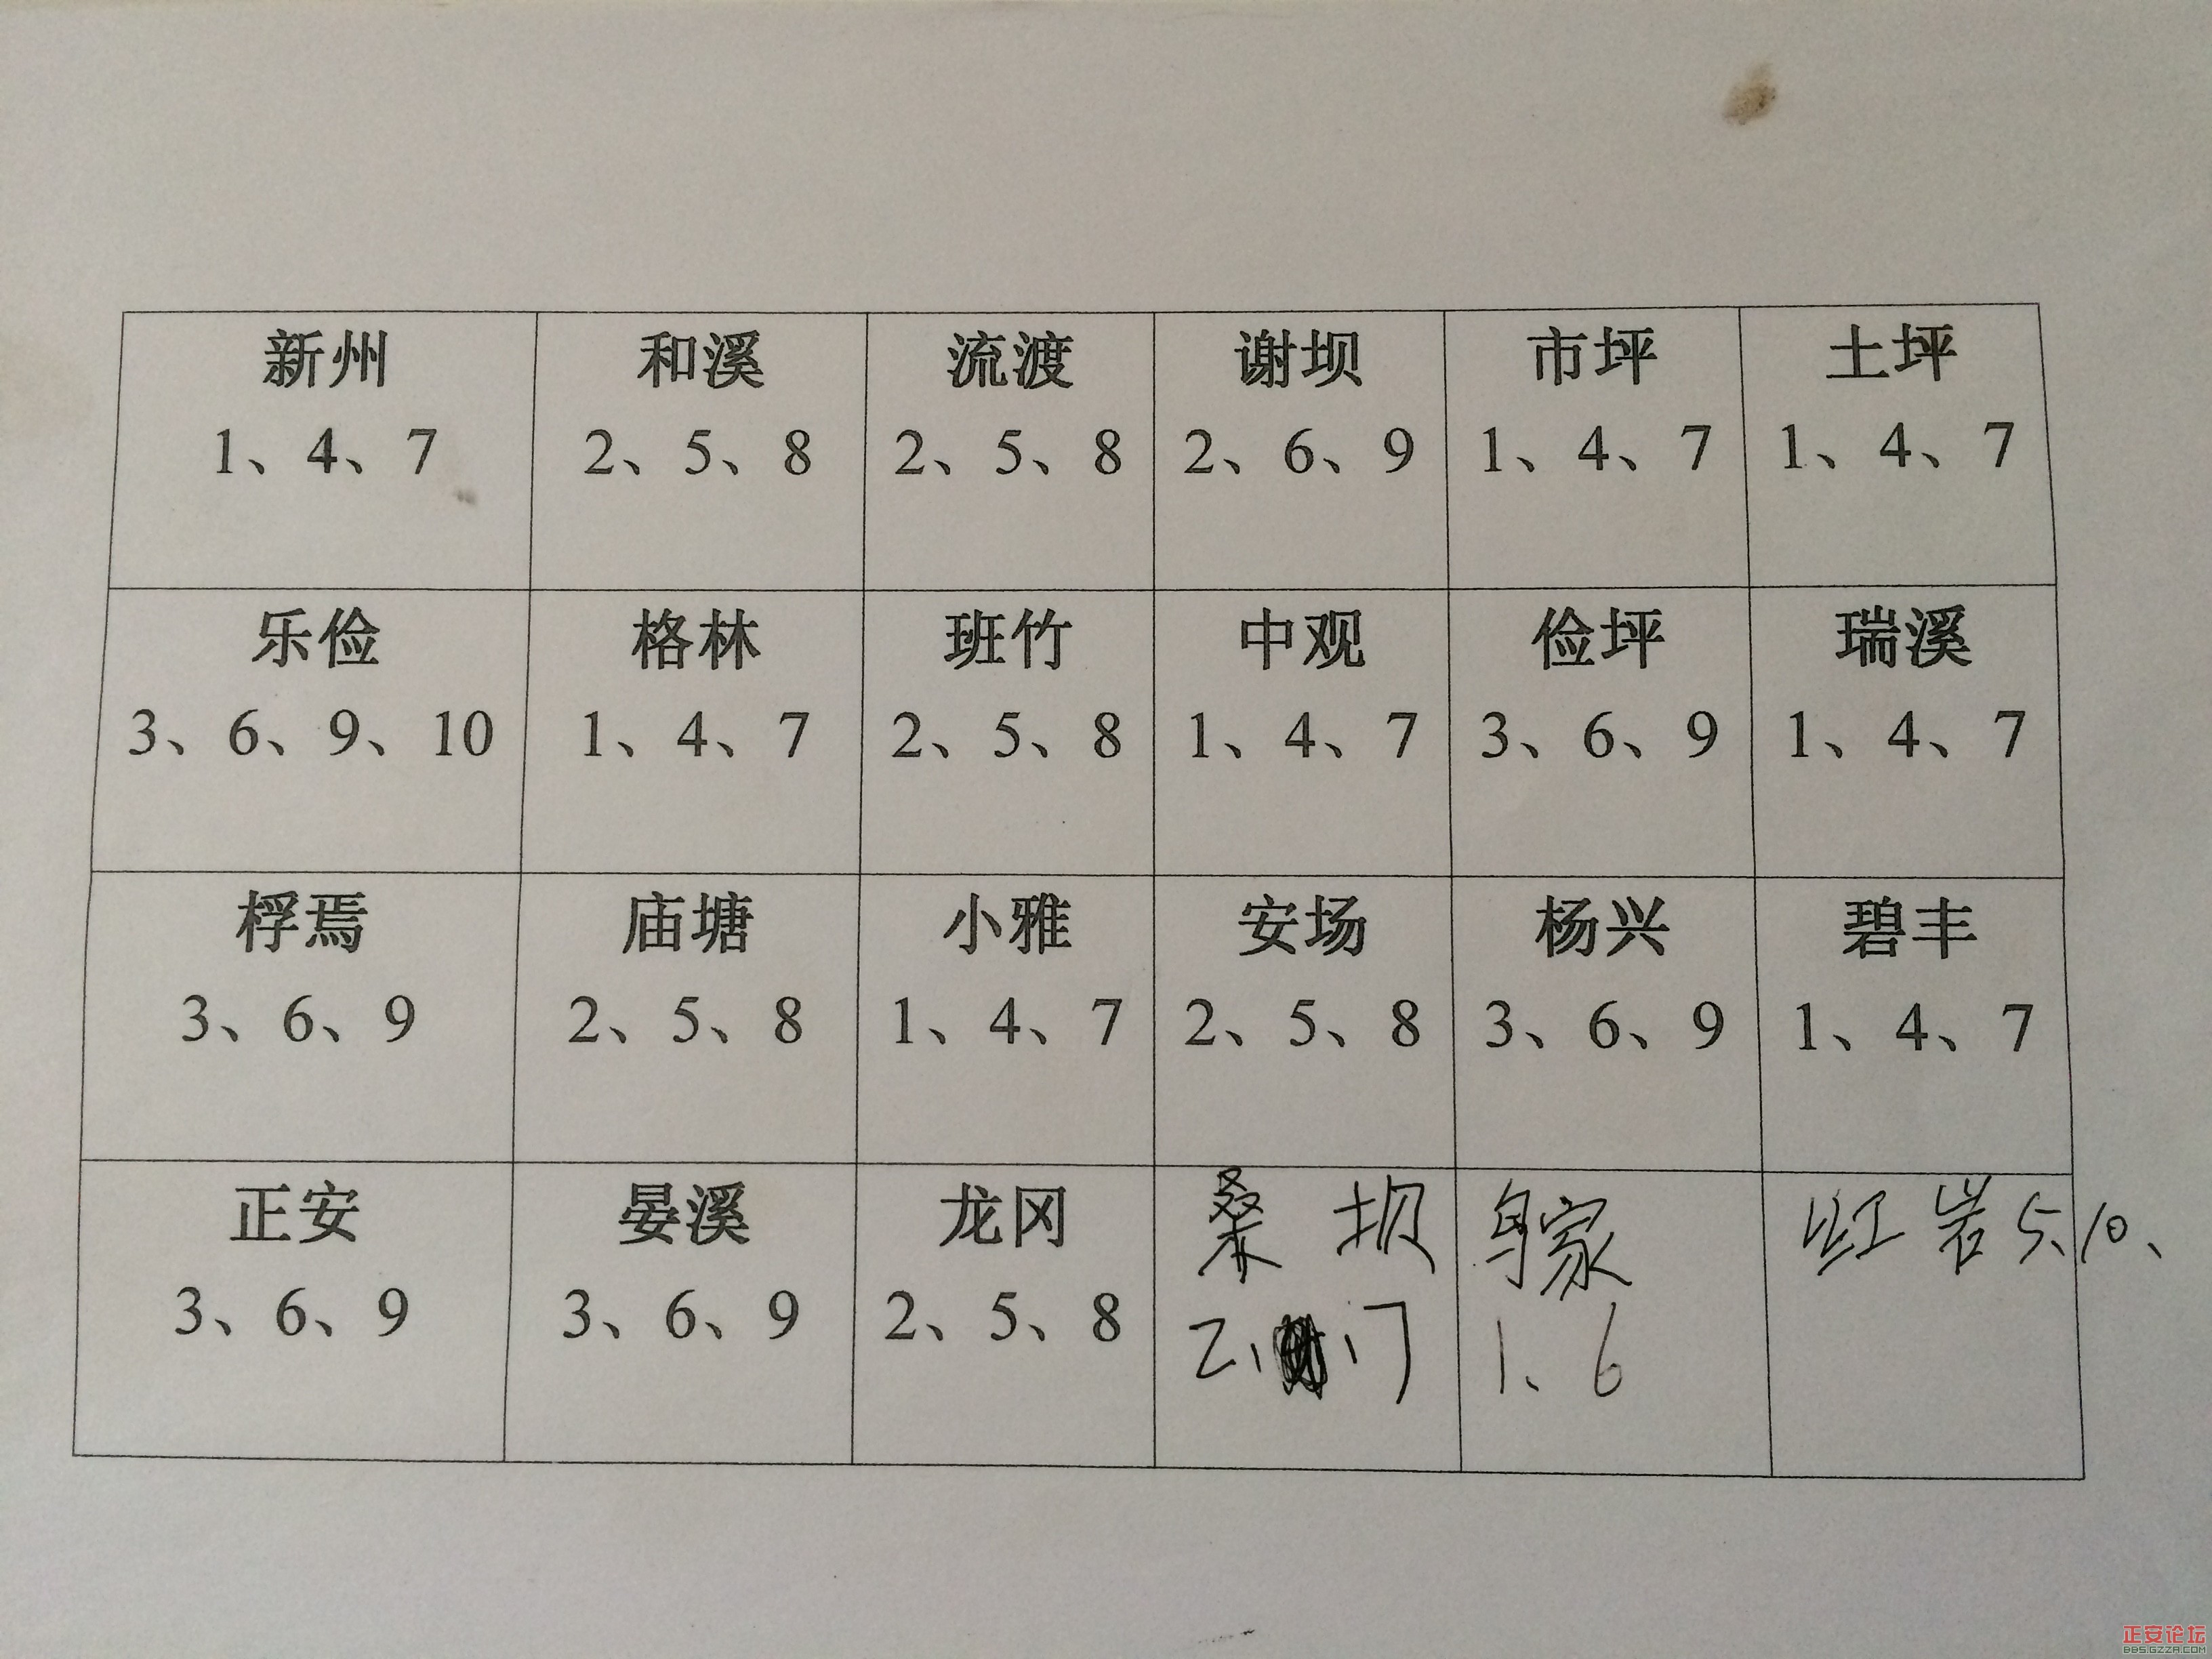 新州 和溪 流渡 谢坝 市坪 土坪
1、4、7 2、5、8 2、5、8 2、6、9 1、4、7 1、4、7
乐俭 格林 班竹 中观 俭坪 瑞溪
3、6、9、10 1、4、7 2、5、8 1、4、7 3、6、9 1、4、7
桴焉 庙塘 小雅 安场 杨兴 碧丰
3、6、9 2、5、8 1、4、7 2、5、8 3、6、9 1、4、7
正安 晏溪 龙冈 桑坝 家 红岩5、10、
3、6、9 3、6、9 2、5、8 2、、7 1、6
正安论坛
BBS.GZZA.COM